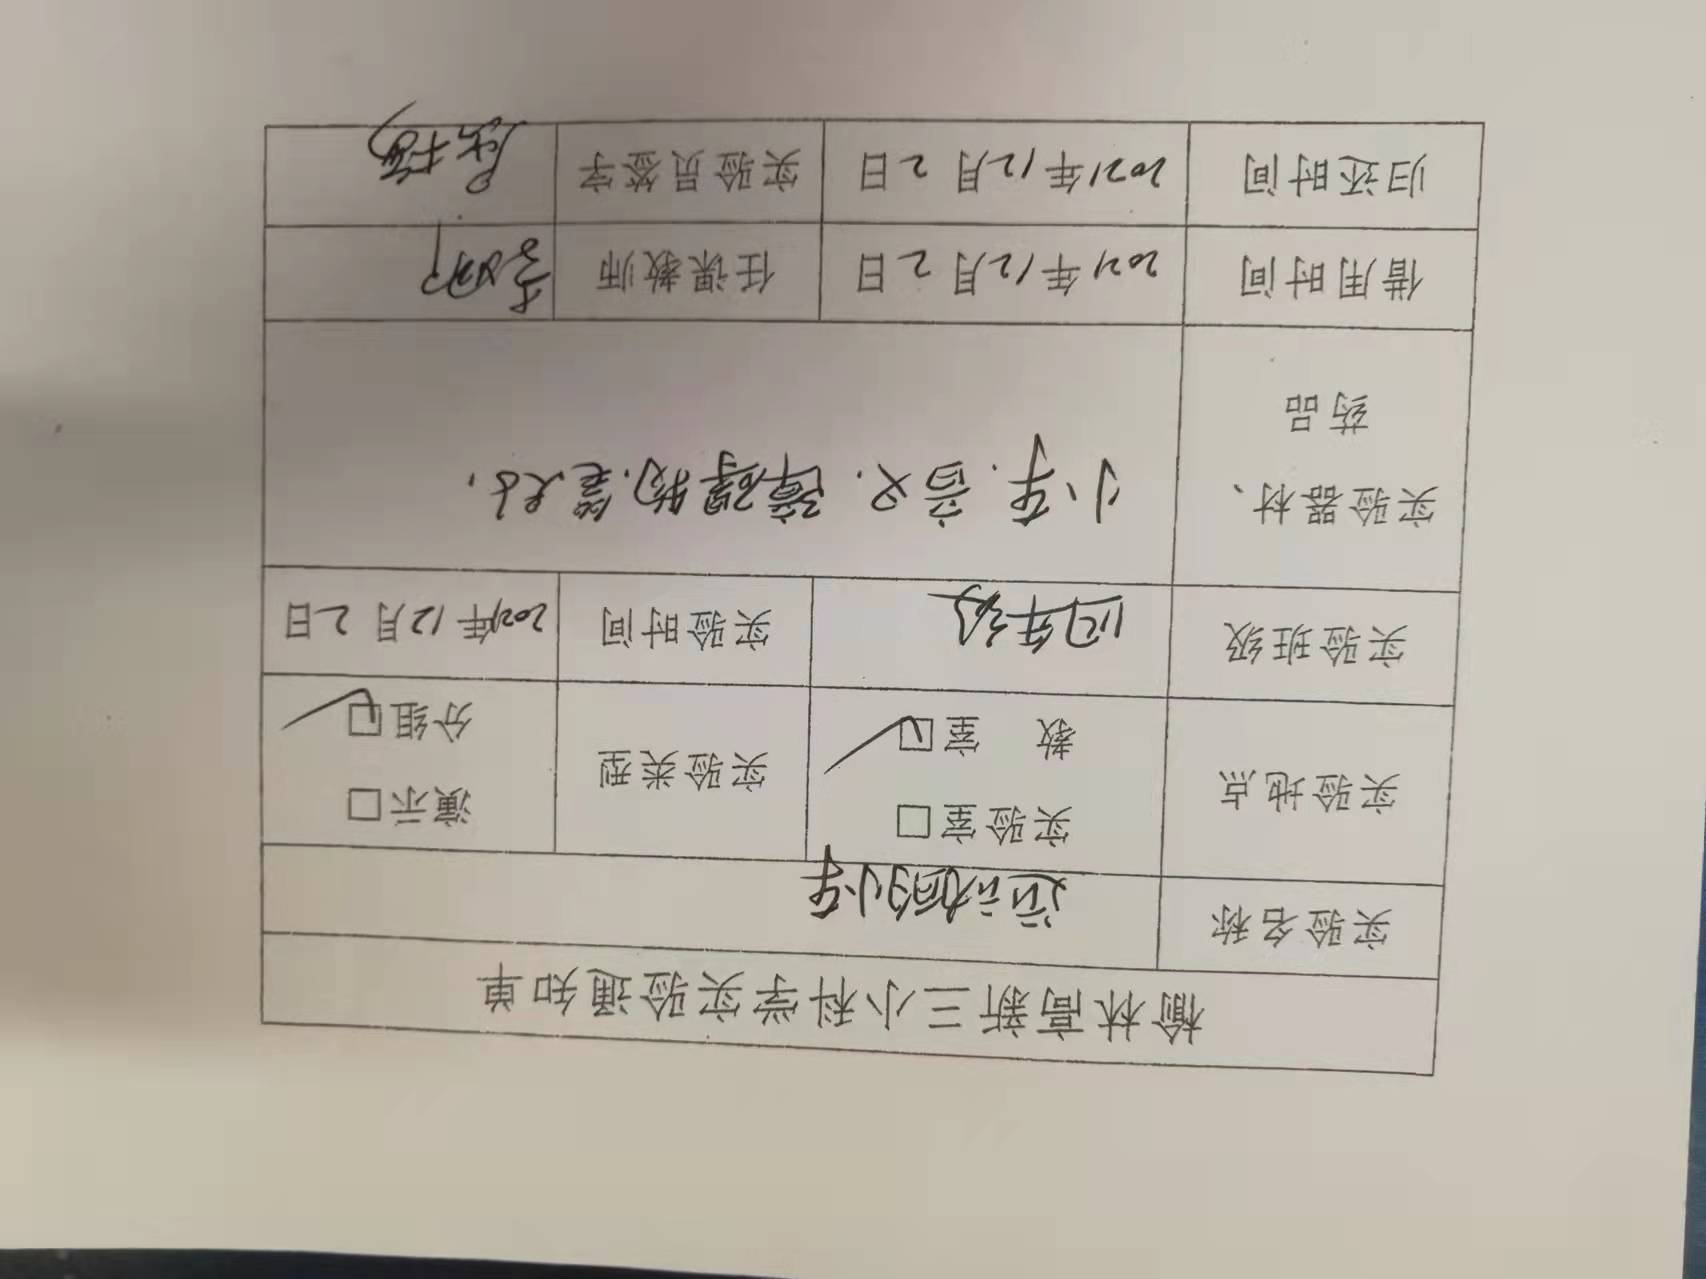 榆林高新三小科学实验通知单
实验名称 运动的小车
实验地点 实验室□ 教 室□✓ 实验类型 演示□ 分组□✓
实验班级 四年级 实验时间 2021年12月2日
实验器材、药品 小车.音叉.障碍物.
借用时间 2021年12月2日 任课教师
归还时间 2021年12月2日 实验员签字